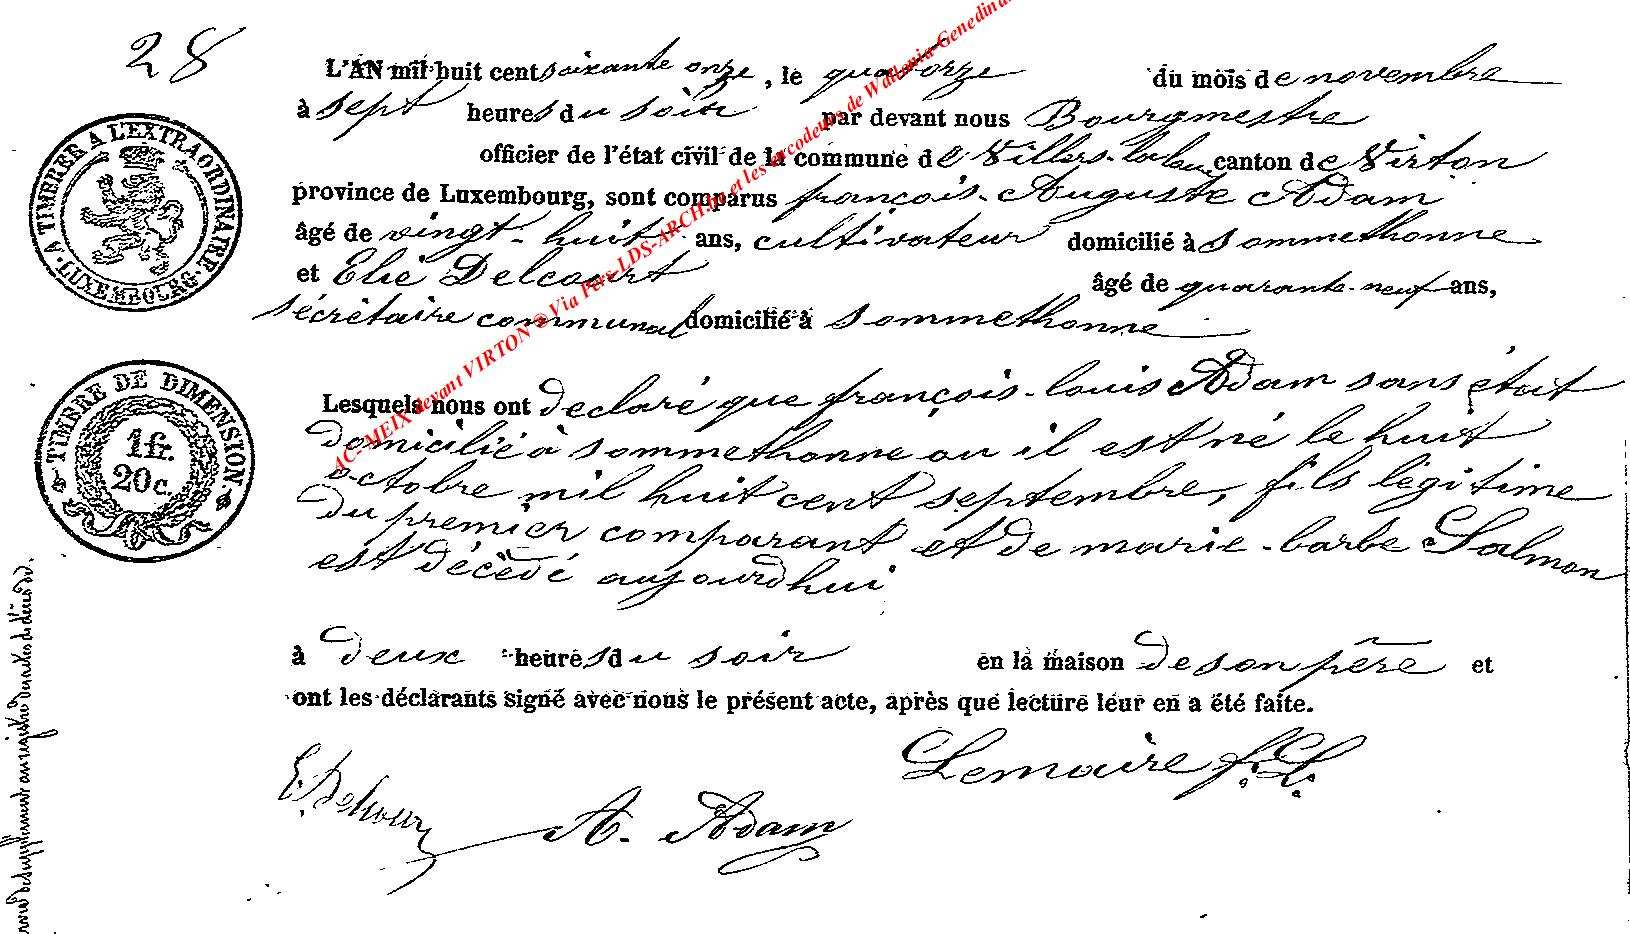 28
L'AN mil huit cent soixante onze, le quatorze du mois de novembre
à sept heures du soir par devant nous Bourgmestre
officier de l'état civil de la commune de Villers-la canton de Virton
province de Luxembourg, sont comparus françois-Auguste Adam
âgé de vingt-huit ans, cultivateur domicilié à sommethonne
et Elie Delcourt âgé de quarante-neuf ans,
sécrétaire communal domicilié à sommethonne
Lesquels nous ont declaré que françois-louis Adam sans état
domicilié à sommethonne ou il est né le huit
octobre mil huit cent septembre, fils légitime
du premier comparant et de marie-barbe Salmon
est décédé aujourdhui
à deux heures du soir en la maison de son père et
ont les déclarants signé avec nous le présent acte, après que lecture leur en a été faite.
Lemaire f. L.
E. Delcour
A. Adam
A TIMBRER A L'EXTRAORDINAIRE
LUXEMBOURG
TIMBRE DE DIMENSION
1 fr.
20 c.
AC-MEIX devant VIRTON © Via Pers-LDS-ARCH.be et les encodeurs de Wallonia-Genedinal